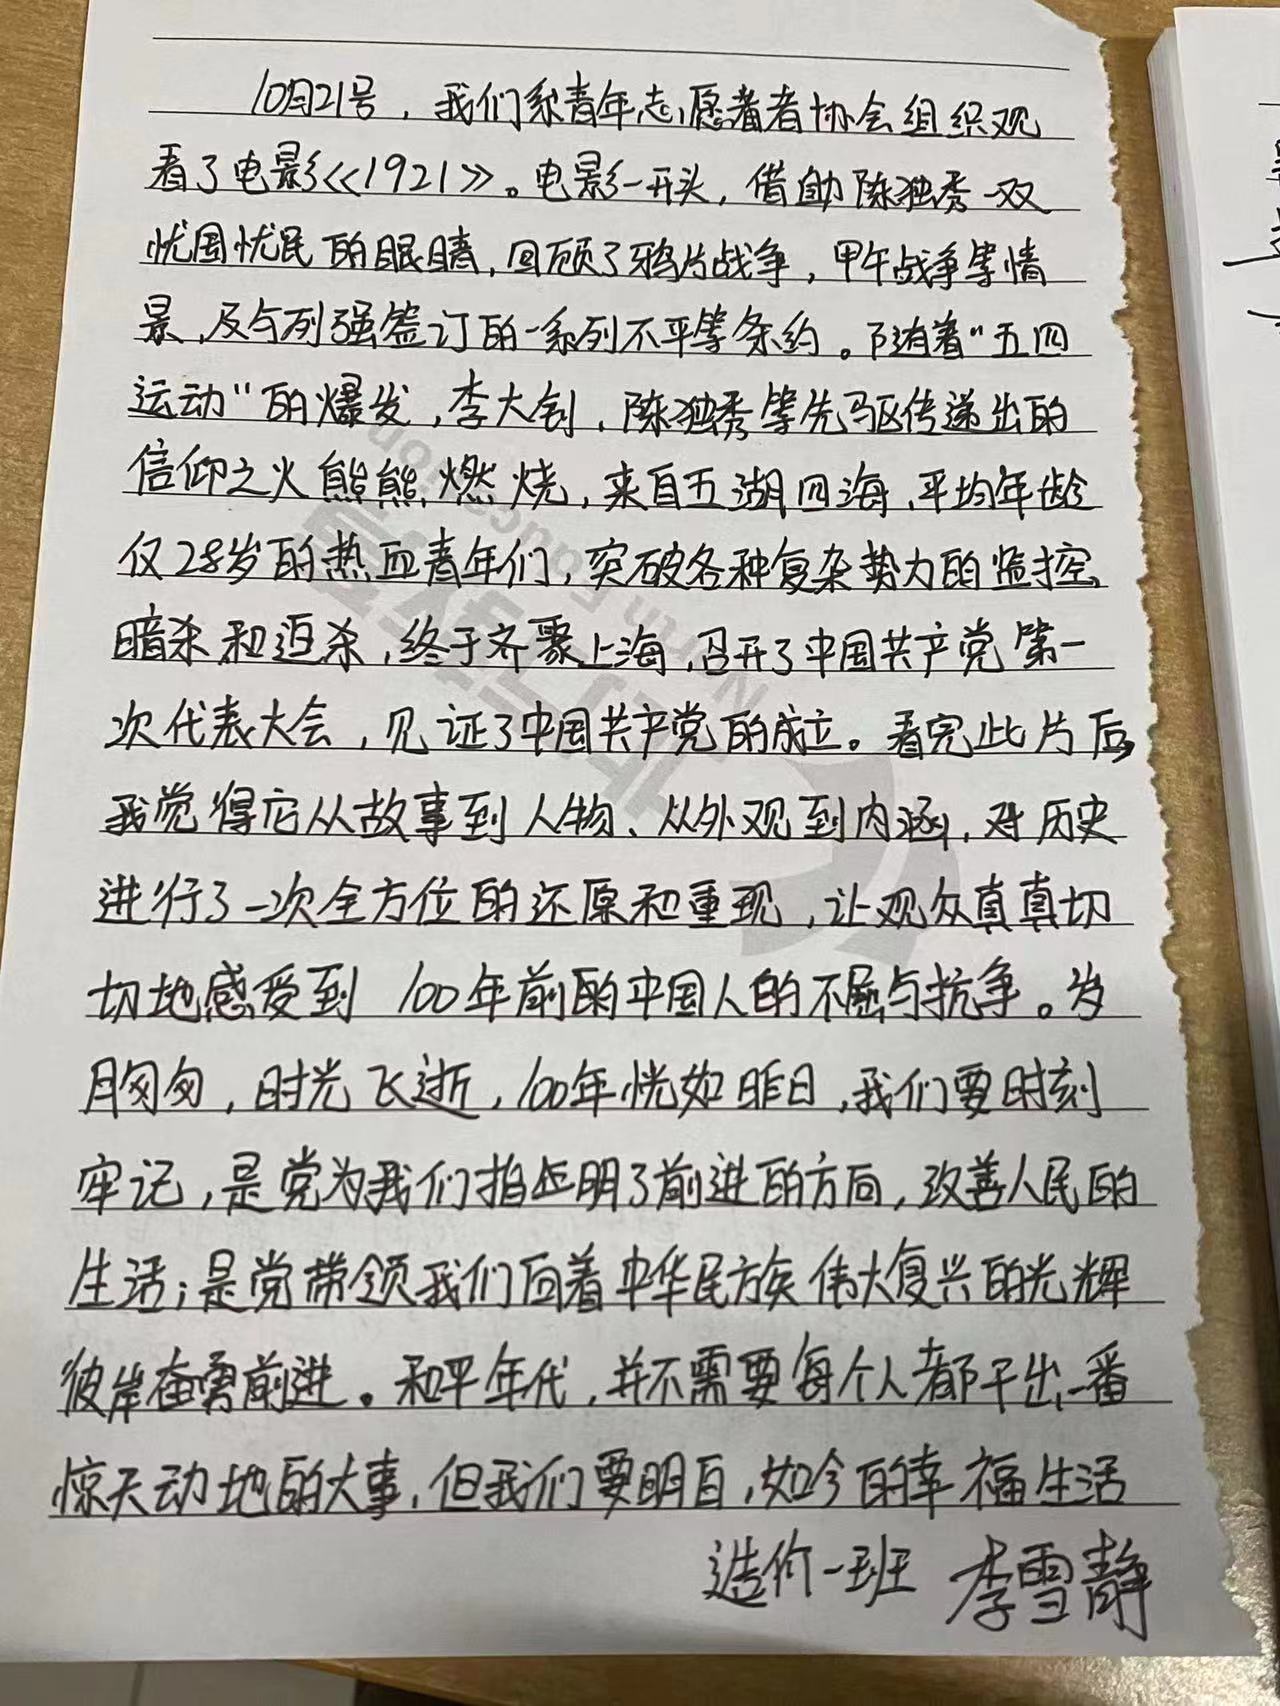 10月21号，我们系青年志愿者协会组织观
看了电影《1921》。电影一开头，借助陈独秀一双
忧国忧民的眼睛，回顾了鸦片战争，甲午战争等情
景，及与列强签订的一系列不平等条约。随着“五四
运动”的爆发，李大钊、陈独秀等先驱传递出的
信仰之火熊熊燃烧，来自五湖四海、平均年龄
仅28岁的热血青年们，突破各种复杂势力的监控、
暗杀和追杀，终于齐聚上海，召开了中国共产党第一
次代表大会，见证了中国共产党的成立。看完此片后，
我觉得它从故事到人物、从外观到内涵，对历史
进行了一次全方位的还原和重现，让观众真真切
切地感受到100年前的中国人的不屈与抗争。岁
月匆匆，时光飞逝，100年恍如昨日，我们要时刻
牢记，是党为我们指明了前进的方向，改善人民的
生活；是党带领我们向着中华民族伟大复兴的光辉
彼岸奋勇前进。和平年代，并不需要每个人都干出一番
惊天动地的大事，但我们要明白，如今的幸福生活
造价一班 李雪静